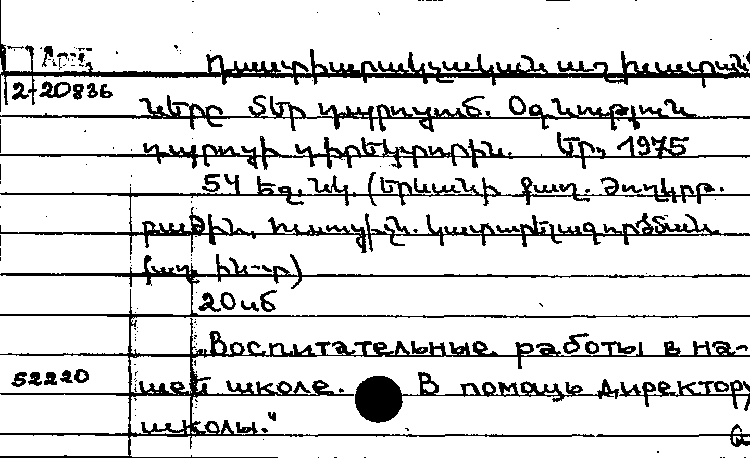 Арм.
Դաստիարակչական աշխատան
2-20836
ները մեր դպրոցում. Օգնություն
դպրոցի դիրեկտորին. Եր., 1975
54 էջ. նկ. (Երևանի քաղ. ժողկրթ.
բաժին, ուսուցիչն. կատարելագործման
քաղ. ին-տ)
„Воспитательные работы в на-
52220
шей школе. В помощь директору
школы."